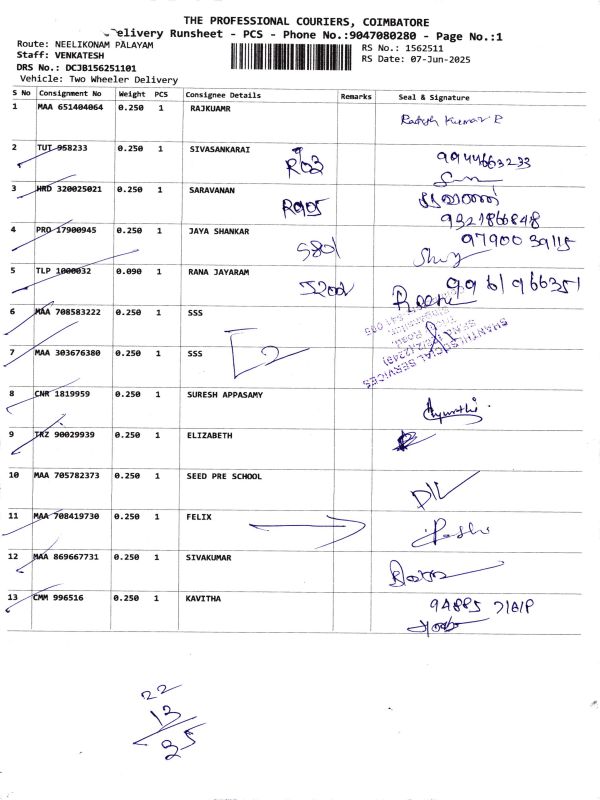 THE PROFESSIONAL COURIERS, COIMBATORE
elivery Runsheet - PCS - Phone No.:9047080280 - Page No.:1
Route: NEELIKONAM PALAYAM
RS No.: 1562511
Staff: VENKATESH
RS Date: 07-Jun-2025
DRS No.: DCJB156251101
Vehicle: Two Wheeler Delivery
S No Consignment No Weight PCS Consignee Details Remarks Seal & Signature
1 MAA 651404064 0.250 1 RAJKUAMR
2 TUT 958233 0.250 1 SIVASANKARAI R903 9944663233
3 HRD 320025021 0.250 1 SARAVANAN R905 சரவணன்
9321866848
4 PRO 17900945 0.250 1 JAYA SHANKAR S801 97900 39115
5 TLP 1000032 0.090 1 RANA JAYARAM J2002 9961966351
6 MAA 708583222 0.250 1 SSS
7 MAA 303676380 0.250 1 SSS 2
SHANTHI SOCIAL SERVICES
8 CNR 1819959 0.250 1 SURESH APPASAMY
9 TRZ 90029939 0.250 1 ELIZABETH
10 MAA 705782373 0.250 1 SEED PRE SCHOOL
11 MAA 708419730 0.250 1 FELIX
12 MAA 869667731 0.250 1 SIVAKUMAR
13 CMM 996516 0.250 1 KAVITHA
22
13
35